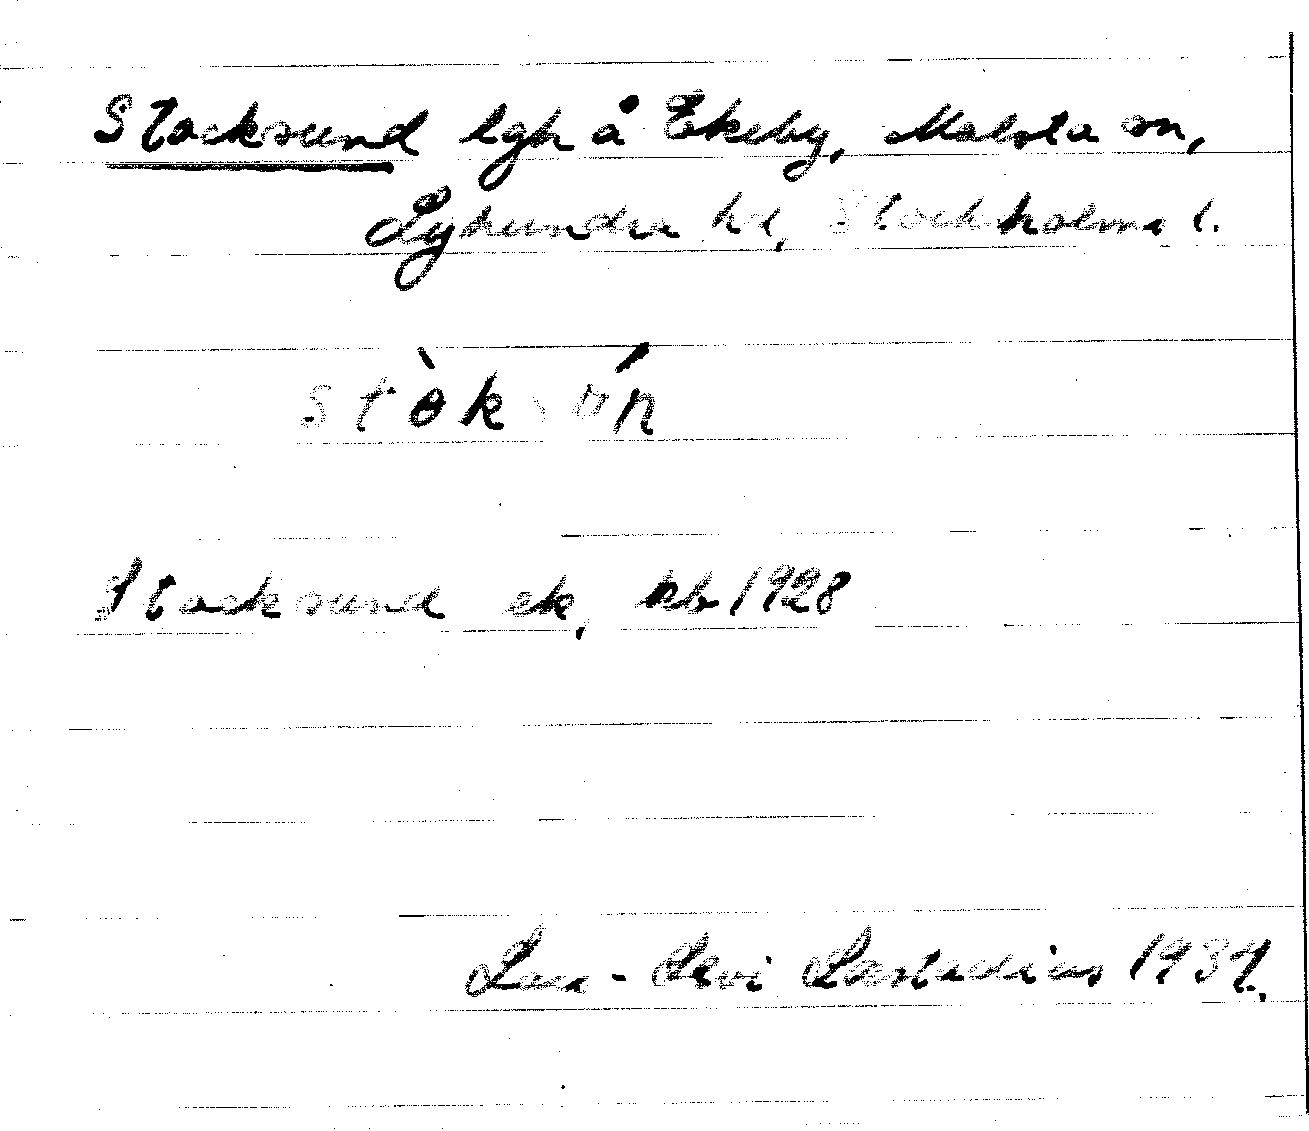 Stocksund lgh å Ekeby, Malsta sn,
Lyhundra hd, Stockholms l.
Stocksund ek, kb 1928
Lars-Levi Læstadius 1937.